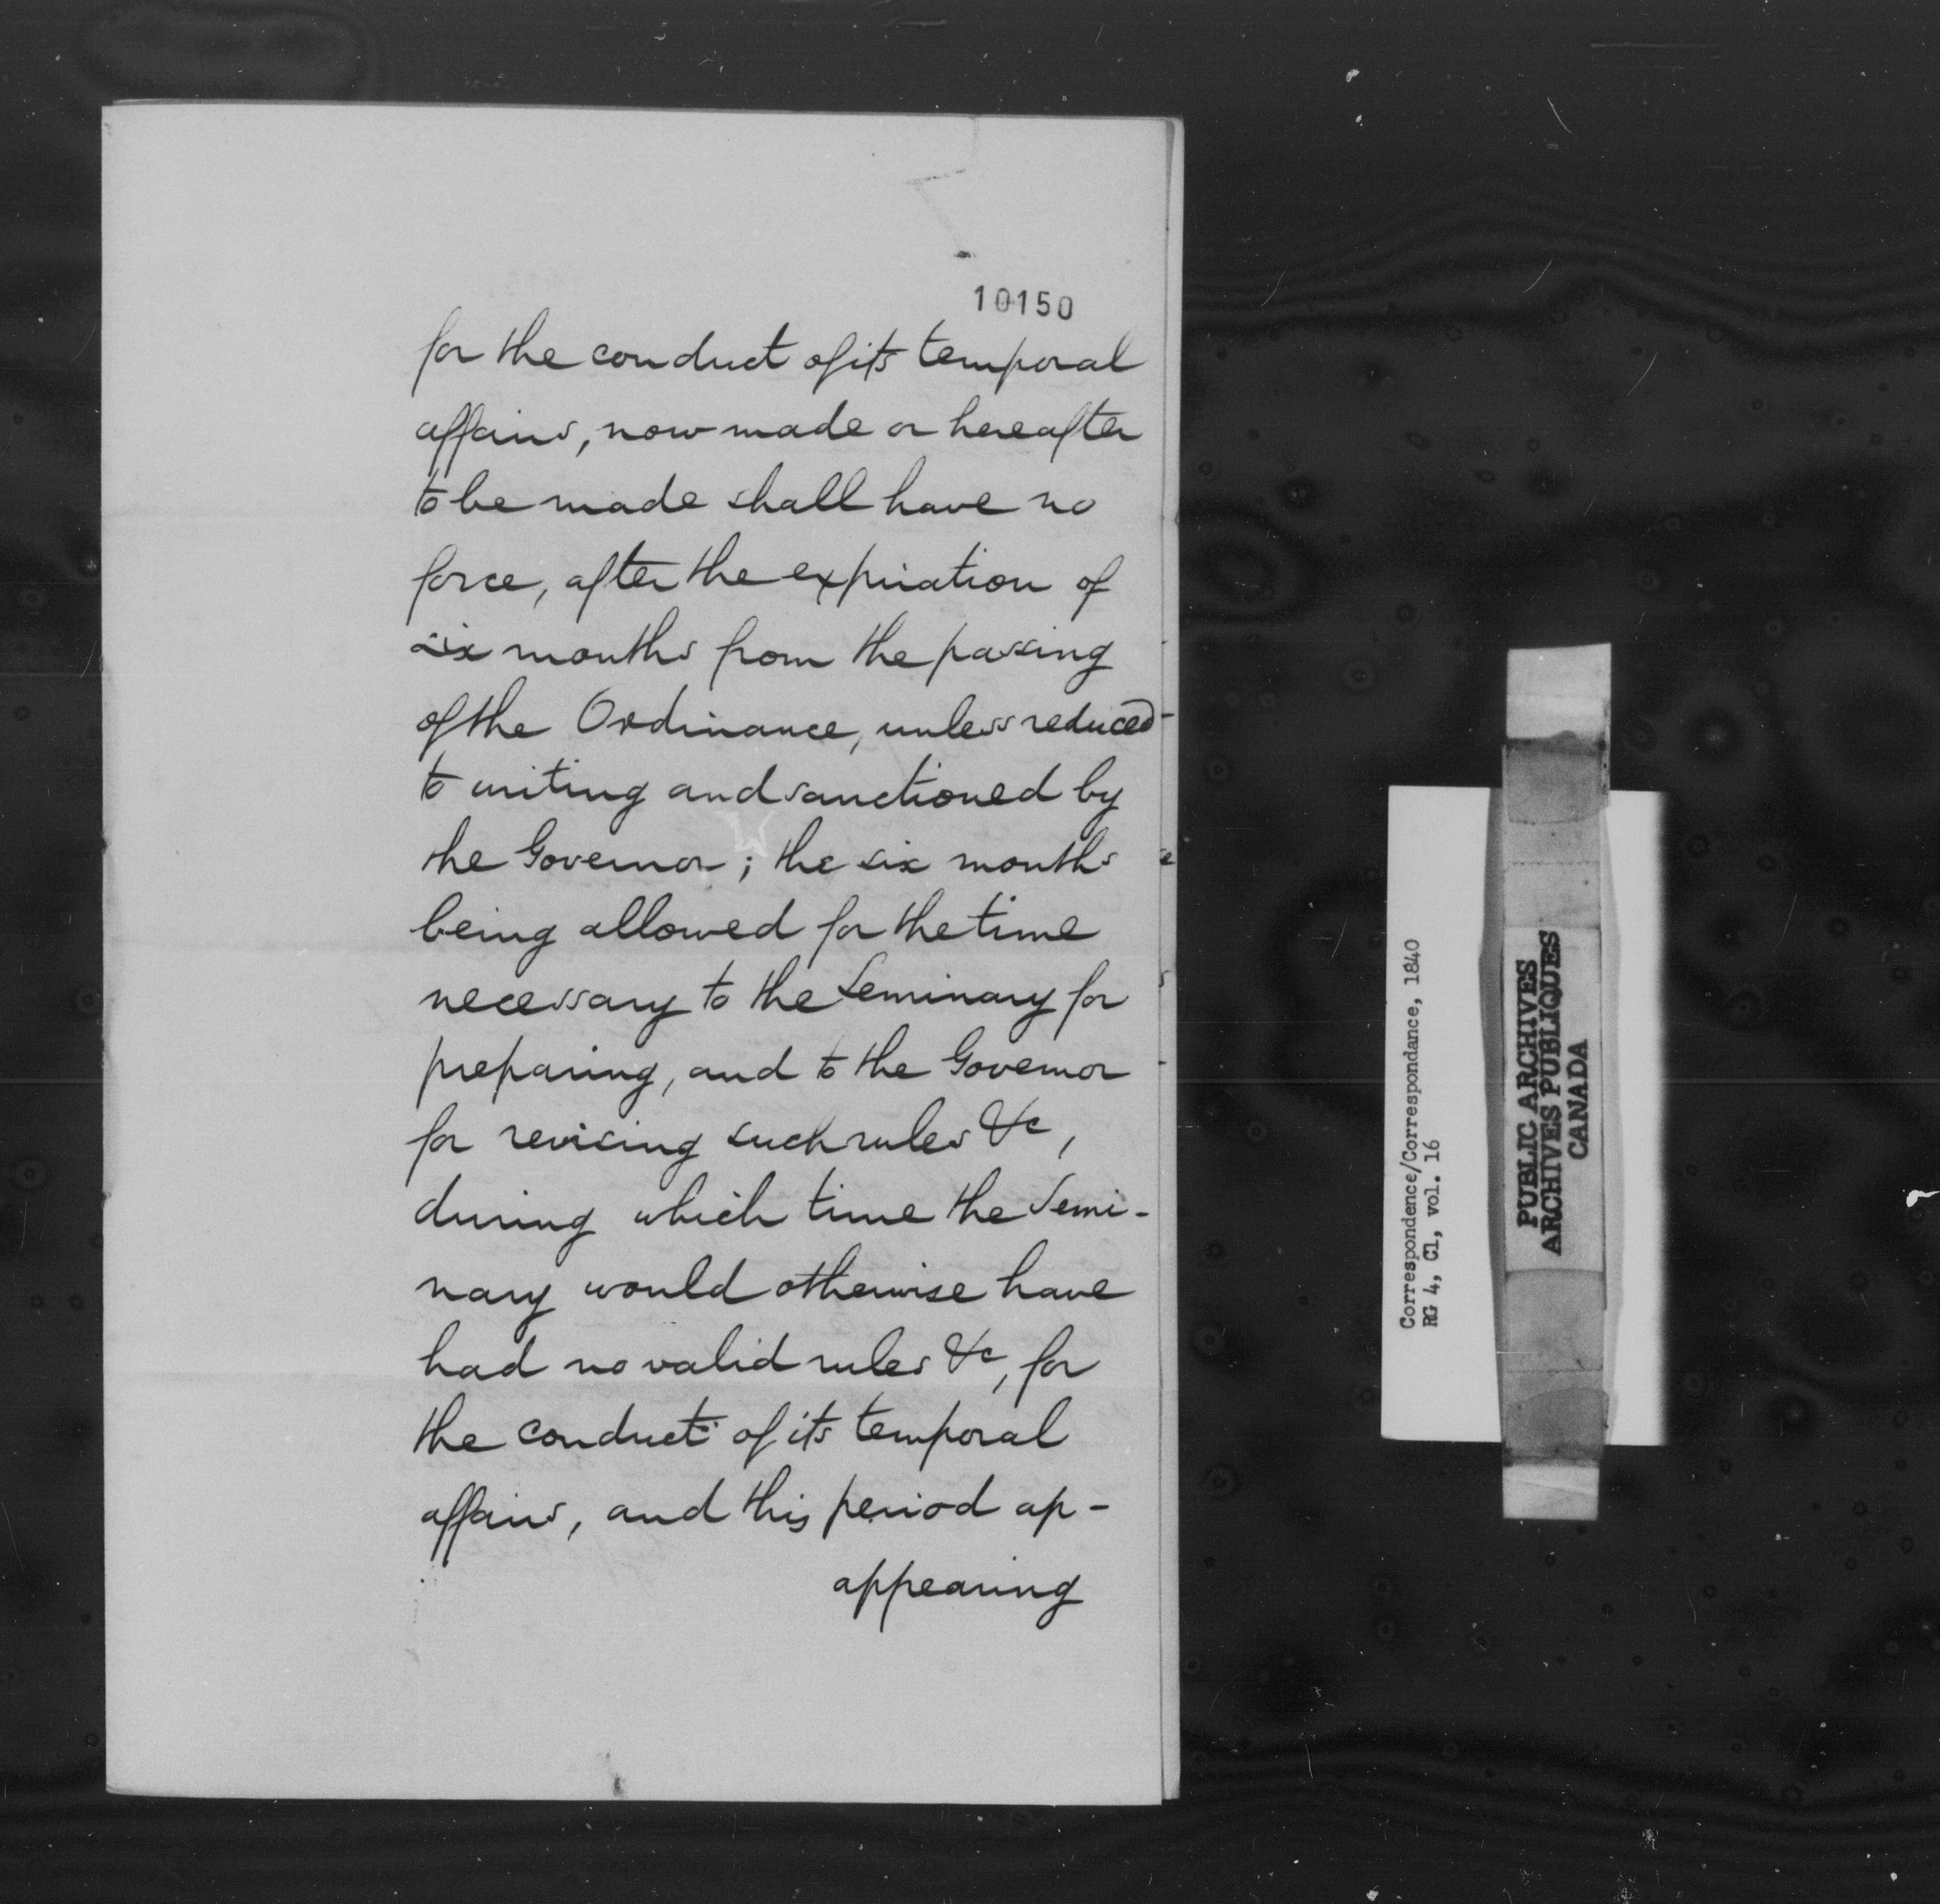 10150
for the conduct of its temporal
affairs, now made or hereafter
to be made shall have no
force, after the expiration of
six months from the passing
of the Ordinance, unless reduced
to writing and sanctioned by
the Governor; the six months
being allowed for the time
necessary to the Seminary for
preparing, and to the Governor
for revising such rules &c,
during which time the Semi-
nary would otherwise have
had no valid rules &c, for
the conduct of its temporal
affairs, and this period ap-
appearing
Correspondence/Correspondance, 1840
RG 4, C1, vol. 16
PUBLIC ARCHIVES
ARCHIVES PUBLIQUES
CANADA